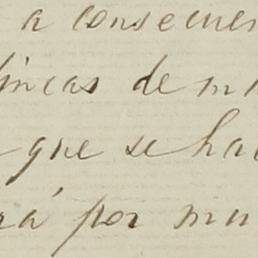 a consecuen
lineas de m
que se hal
rá por mu